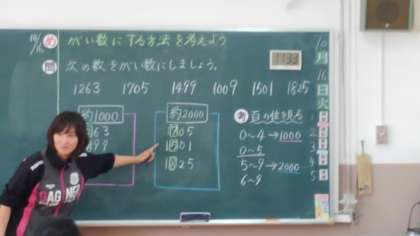 10/16 め がい数にする方法を考えよう
問 次の数をがい数にしましょう。
1263 1705 1499 1009 1501 1825
約1000
263
499
約2000
1705
1501
1825
考 百の位を見る
0～4→1000
0～5
5～9→2000
6～9
1133
10
月
16
日
火
1
2
3
4
5